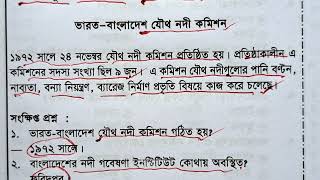 ভারত-বাংলাদেশ যৌথ নদী কমিশন
১৯৭২ সালে ২৪ নভেম্বর যৌথ নদী কমিশন প্রতিষ্ঠিত হয়। প্রতিষ্ঠাকালীন এ
কমিশনের সদস্য সংখ্যা ছিল ৯ জুন। এ কমিশন যৌথ নদীগুলোর পানি বণ্টন,
নাব্যতা, বন্যা নিয়ন্ত্রণ, ব্যারেজ নির্মাণ প্রভৃতি বিষয়ে কাজ করে চলেছে।
সংক্ষিপ্ত প্রশ্ন :
১. ভারত-বাংলাদেশ যৌথ নদী কমিশন গঠিত হয়?
১৯৭২ সালে।
২. বাংলাদেশের নদী গবেষণা ইনস্টিটিউট কোথায় অবস্থিত?
ফরিদপুর